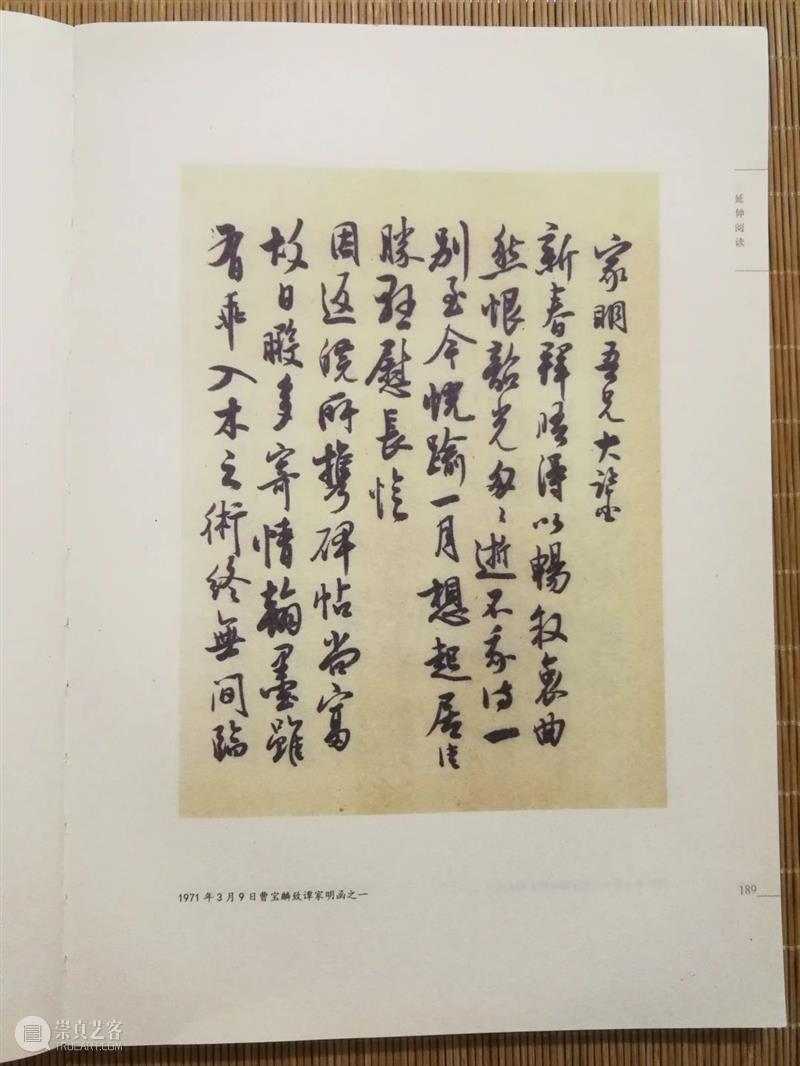 延伸阅读
家明吾兄大鉴
新春释腊得以畅叙衷曲
然恨韶光匆匆逝不我待一
别至今恍踰一月想起居佳
胜驰慰长怜
因返皖所携碑帖尚富
故日暇多寄情翰墨虽
有乖入木之術终無间臨
1971 年 3 月 9 日曹宝麟致谭家明函之一
189
崇真艺客